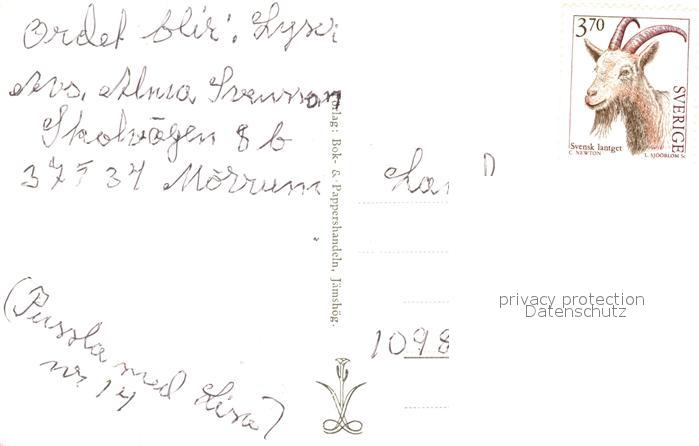 Ordet blir: Lysa
Avs. Alma Svensson
Skolvägen 8 b
375 34 Mörrum
(Pussla med Lisa)
nr. 14
Förlag: Bok- & Pappershandeln, Jämshög.
3.70
SVERIGE
Svensk lantget
C. NEWTON L. SJÖÖBLOM SC
D
1098
privacy protection
Datenschutz